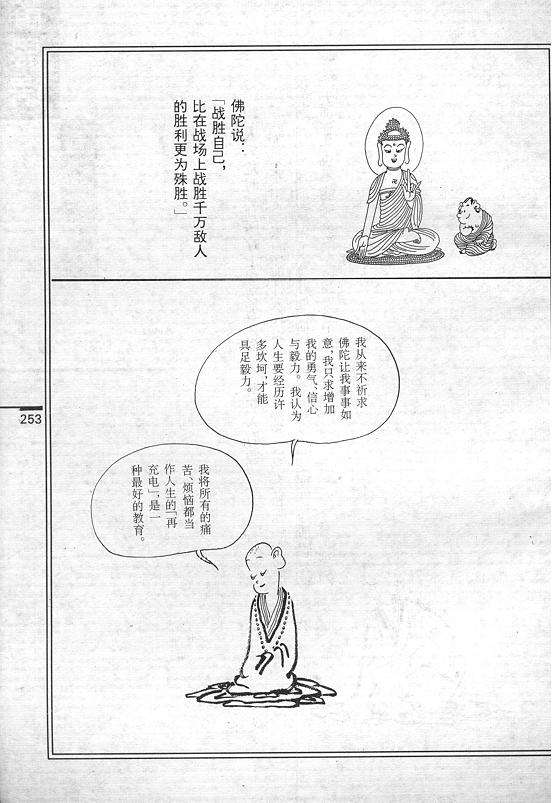 佛陀说：
「战胜自己，
比在战场上战胜千万敌人
的胜利更为殊胜。」
我从来不祈求
佛陀让我事事如
意，我只求增加
我的勇气、信心
与毅力。我认为
人生要经历许
多坎坷，才能
具足毅力。
我将所有的痛
苦、烦恼都当
作人生的「再
充电」，是一
种最好的教育。
253